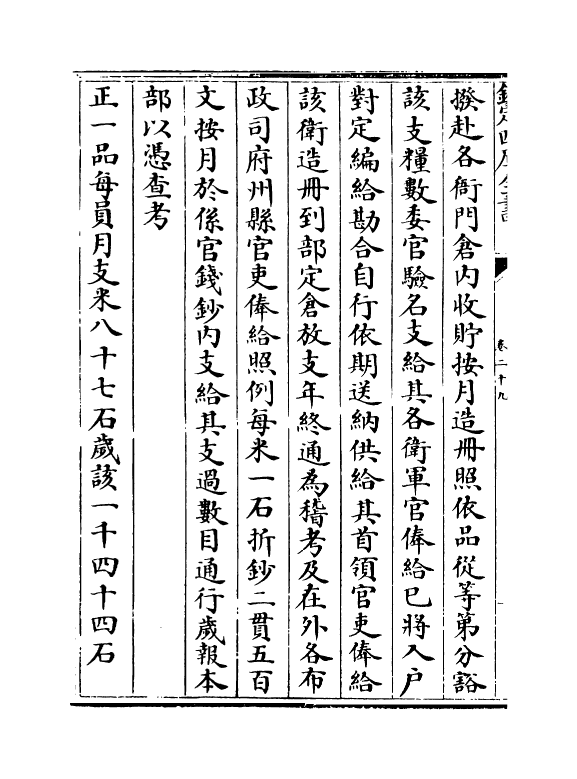 欽定四庫全書
卷二十九
撥赴各衙門倉内收貯按月造冊照依品從等第分豁
該支糧數委官驗名支給其各衛軍官俸給已將入户
對定編給勘合自行依期送納供給其首領官吏俸給
該衛造冊到部定倉放支年終通為稽考及在外各布
政司府州縣官吏俸給照例每米一石折鈔二貫五百
文按月於係官錢鈔内支給其支過數目通行歲報本
部以憑查考
正一品每員月支米八十七石歲該一千四十四石